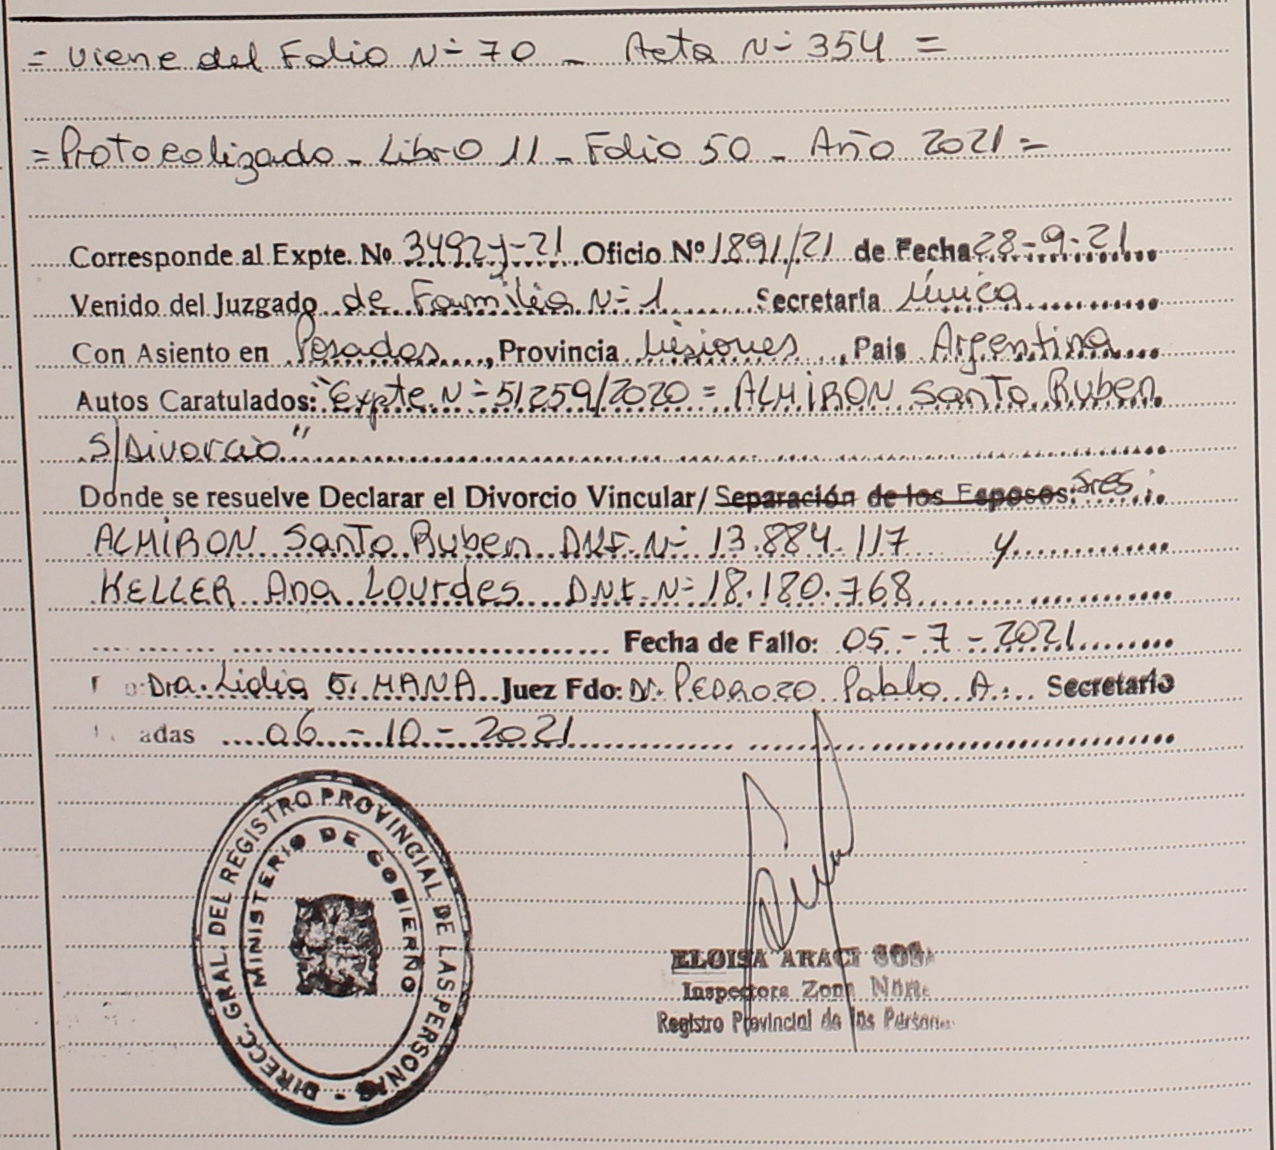 = Viene del Folio N° 70 - Acta N° 354 =
= Protocolizado - Libro 11 - Folio 50 - Año 2021 =
Corresponde al Expte. Nº 3492-J-21 Oficio Nº 1891/21 de Fecha 28-9-21
Venido del Juzgado de Familia N° 1 Secretaria Única
Con Asiento en Posadas, Provincia Misiones, Pais Argentina
Autos Caratulados: "Expte N° 51259/2020 = ALMIRON Santo Ruben
S/Divorcio"
Donde se resuelve Declarar el Divorcio Vincular/ Separación de los Esposos: Sres:
ALMIRON Santo Ruben DNI. N° 13.884.117 y
KELLER Ana Lourdes DNI. N° 18.180.768
Fecha de Fallo: 05-7-2021
Dra. Lidia E. MANA Juez Fdo: Dr. PEDROZO Pablo A. Secretario
adas 06-10-2021
DIRECC. GRAL. DEL REGISTRO PROVINCIAL DE LAS PERSONAS
MINISTERIO DE GOBIERNO
ELOISA ARACI SOSA
Inspectora Zona Norte
Registro Provincial de las Personas